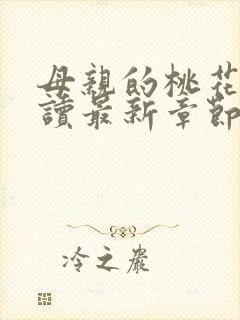 母親的桃花
讀最新章節
冷之嚴